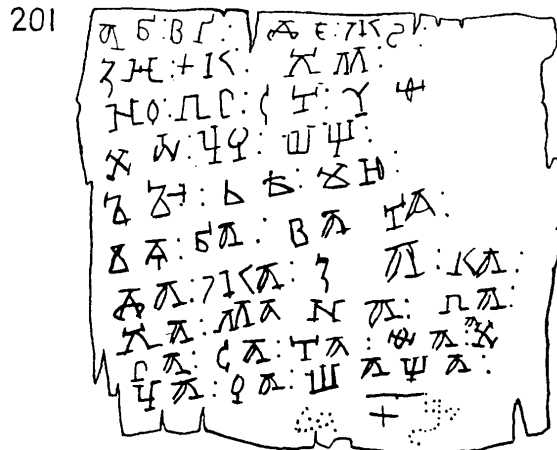 201
а б : в г : д е : ж ѕ :
з и : і к : л м :
н о : п р : с т : у ф
х ѡ : ц ч : ш щ :
ъ ꙑ : ь ѣ : ѫ ю :
ѫ ѧ : б а : в а г а :
д а : ж а : з а : к а :
л а : м а н а : п а :
р а : с а : т а : ф а : х а
ц а : ч а : ш а щ а :